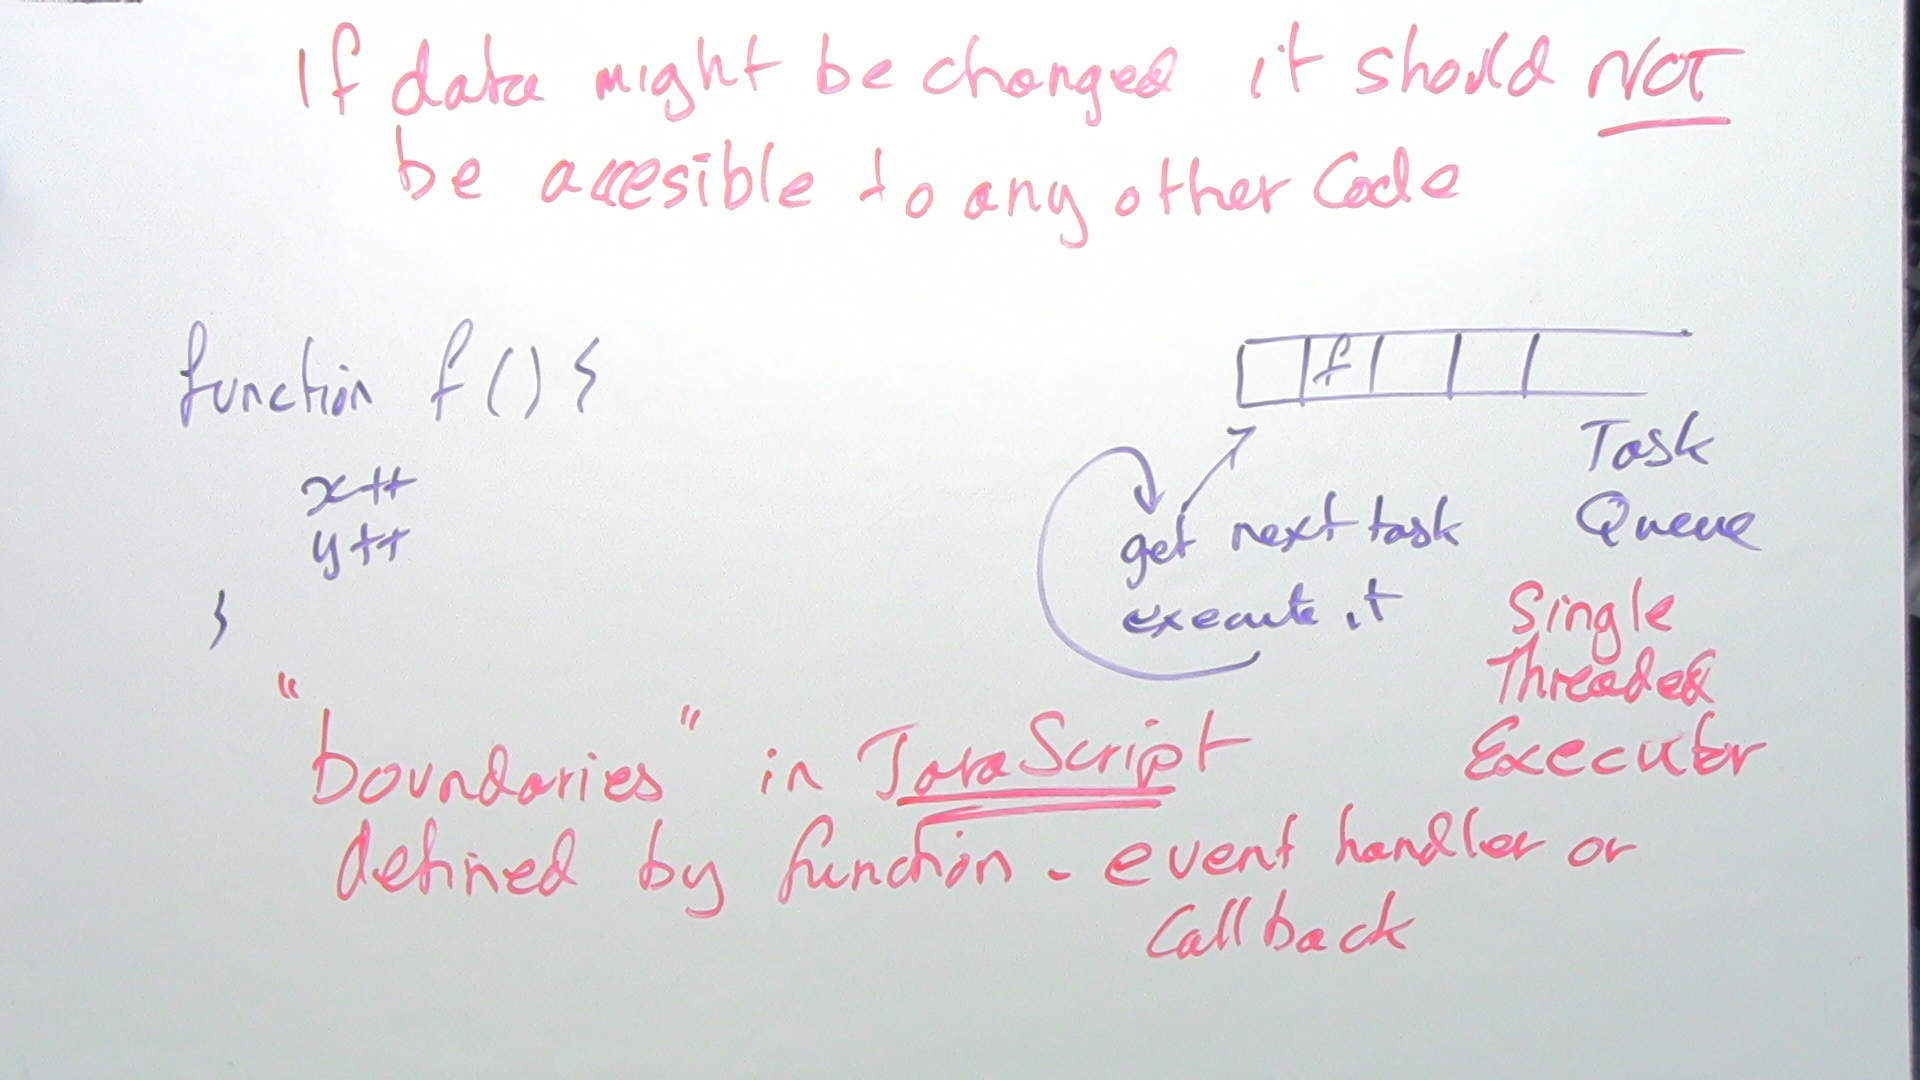 If data might be changed it should NOT
be accesible to any other Code
function f() {
x++
y++
}
f
Task
Queue
get next task
execute it
Single
Threaded
Executor
"boundaries" in JavaScript
defined by function - event handler or
Callback